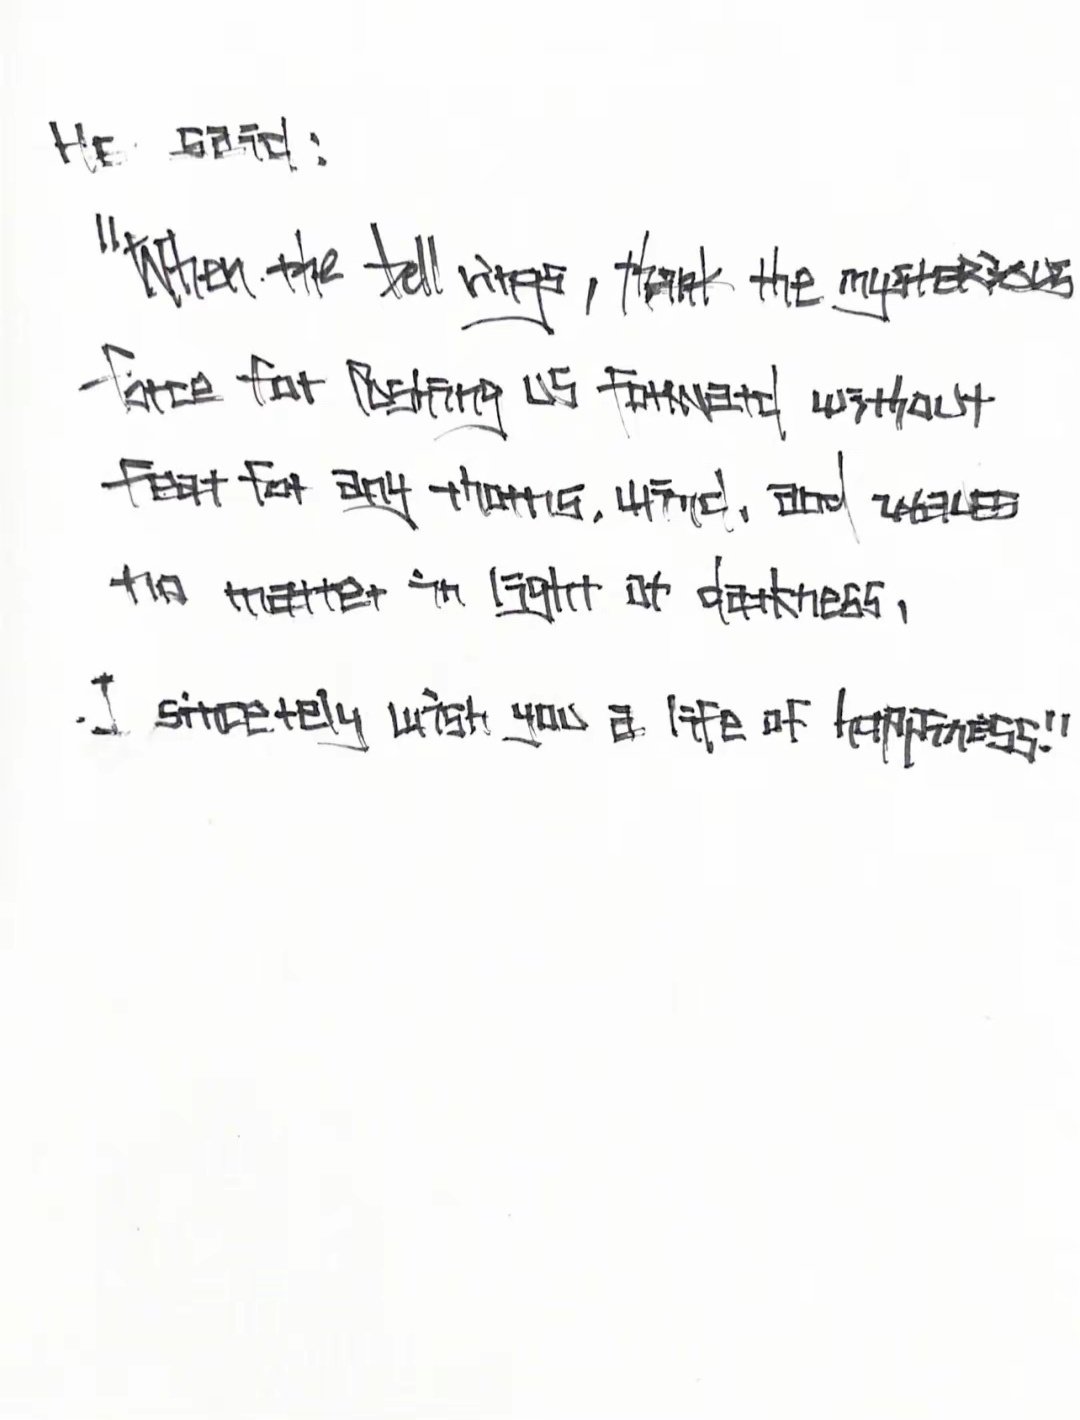 He said:
"When the bell rings, thank the mysterious
force for pushing us forward without
fear for any thorns, wind, and waves
no matter in light or darkness,
I sincerely wish you a life of happiness!"